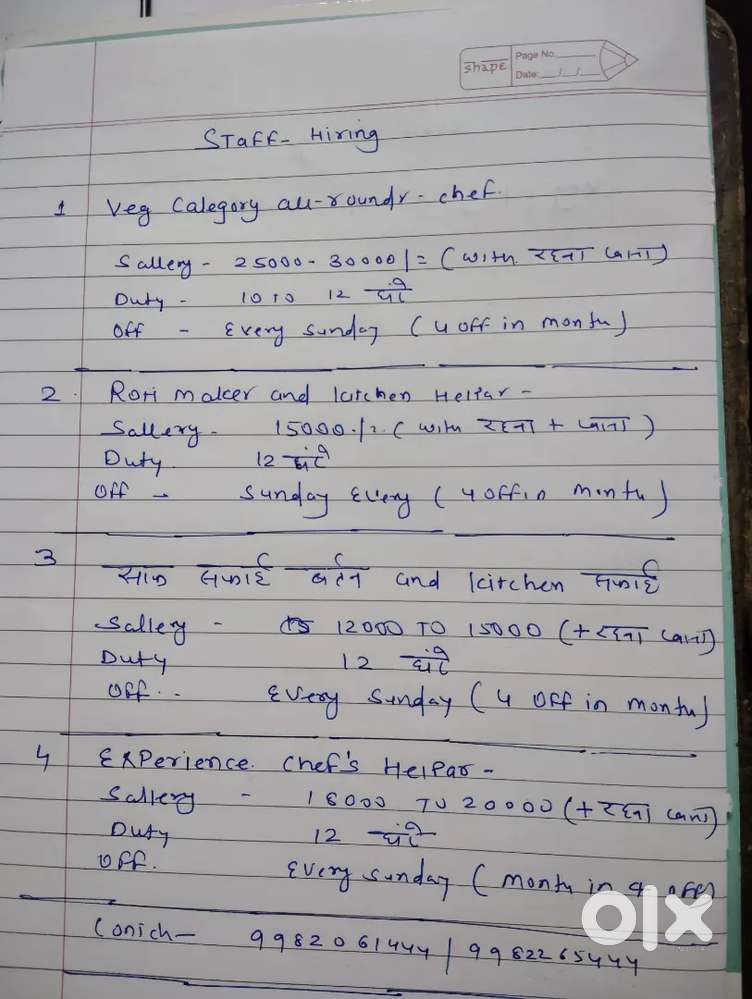 shape
Page No.
Date: / /
Staff- Hiring
1 Veg Category all-roundr - chef.
Sallery - 25000 - 30000/= (with रहना खाना)
Duty - 10 to 12 घंटे
Off - Every Sunday (4 off in month)
2. Roti maker and kitchen Helpar -
Sallery - 15000./=. (with रहना + खाना)
Duty 12 घंटे
Off - Sunday Every (4 off in month)
3 साफ सफाई बर्तन and kitchen सफाई
Sallery - 12000 TO 15000 (+ रहना खाना)
Duty 12 घंटे
Off.. Every Sunday (4 Off in month)
4 Experience. Chef's Helpar -
Sallery - 18000 TO 20000 (+ रहना खाना)
Duty 12 घंटे
Off. Every Sunday (month in 4 off)
9982061444 | 9982265444
olx